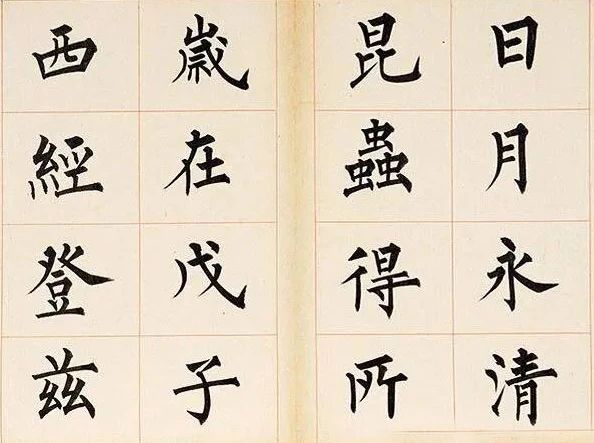 日月永清
昆蟲得所
歲在戊子
西經登茲